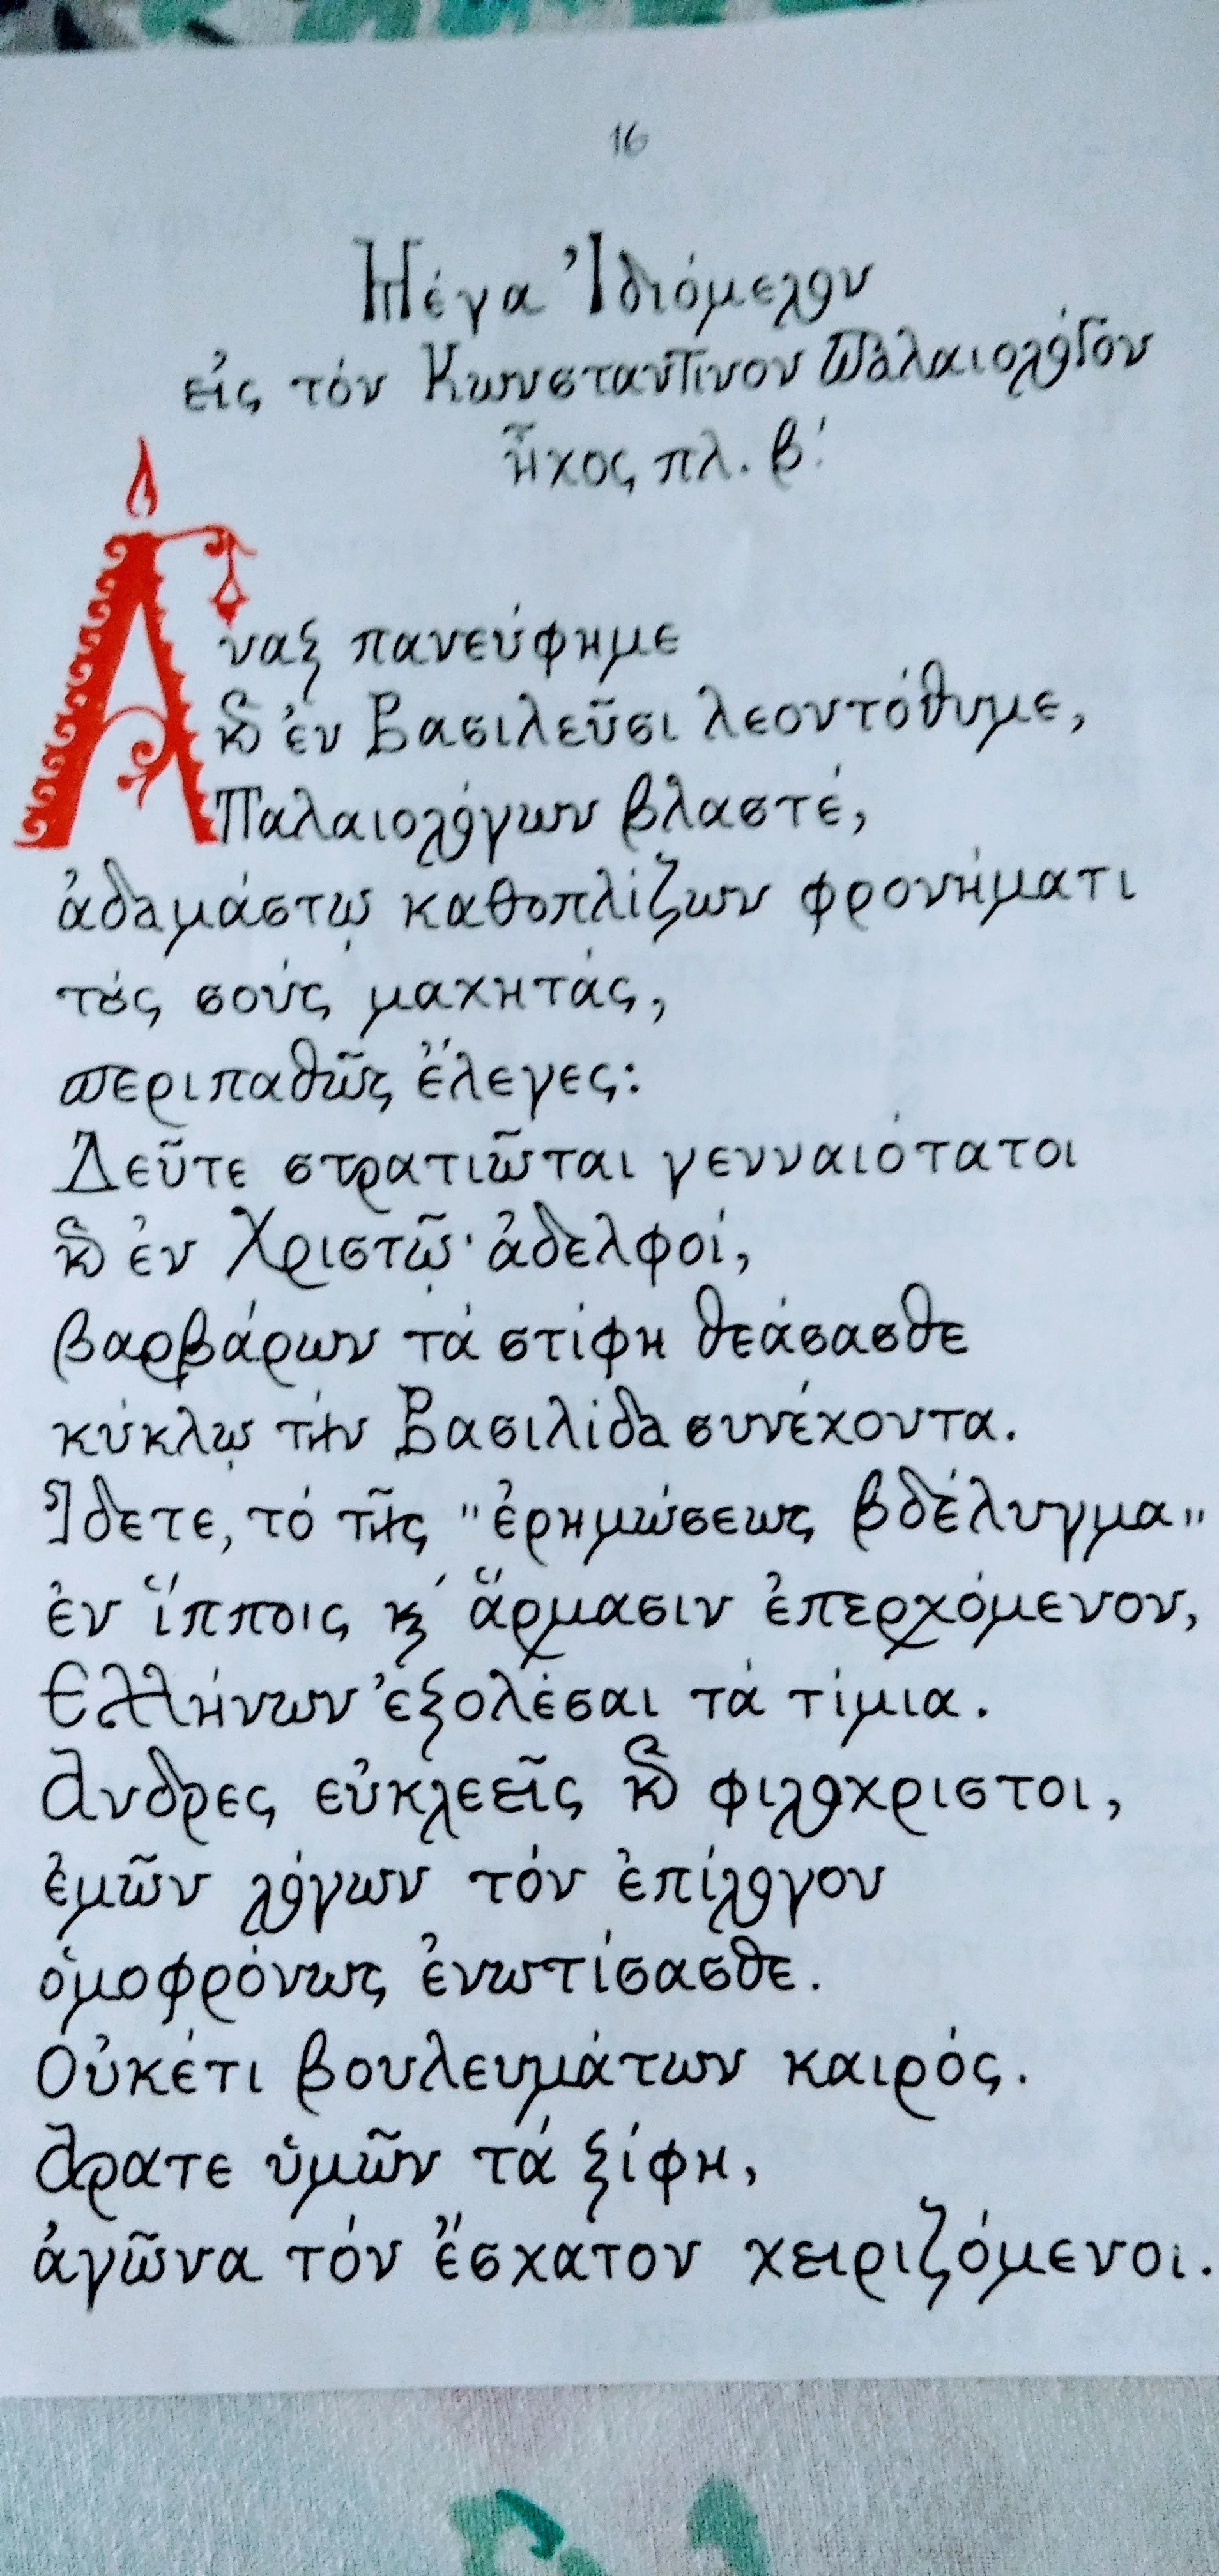 16
Μέγα Ἰδιόμελον
εἰς τόν Κωνσταντίνον Παλαιολόγον
ἦχος πλ. β΄.
Ἄναξ πανεύφημε
καὶ ἐν Βασιλεῦσι λεοντόθυμε,
Παλαιολόγων βλαστέ,
ἀδαμάστῳ καθοπλίζων φρονήματι
τούς σούς μαχητάς,
περιπαθῶς ἔλεγες:
Δεῦτε στρατιῶται γενναιότατοι
καὶ ἐν Χριστῷ ἀδελφοί,
βαρβάρων τά στίφη θεάσασθε
κύκλῳ τήν Βασιλίδα συνέχοντα.
Ἴδετε, τό τῆς "ἐρημώσεως βδέλυγμα"
ἐν ἵπποις κ΄ ἅρμασιν ἐπερχόμενον,
Ελλήνων ἐξολέσαι τά τίμια.
Ανδρες εὐκλεεῖς καὶ φιλόχριστοι,
ἐμῶν λόγων τόν ἐπίλογον
ὁμοφρόνως ἐνωτίσασθε.
Οὐκέτι βουλευμάτων καιρός.
Αρατε ὑμῶν τά ξίφη,
ἀγῶνα τόν ἔσχατον χειριζόμενοι.